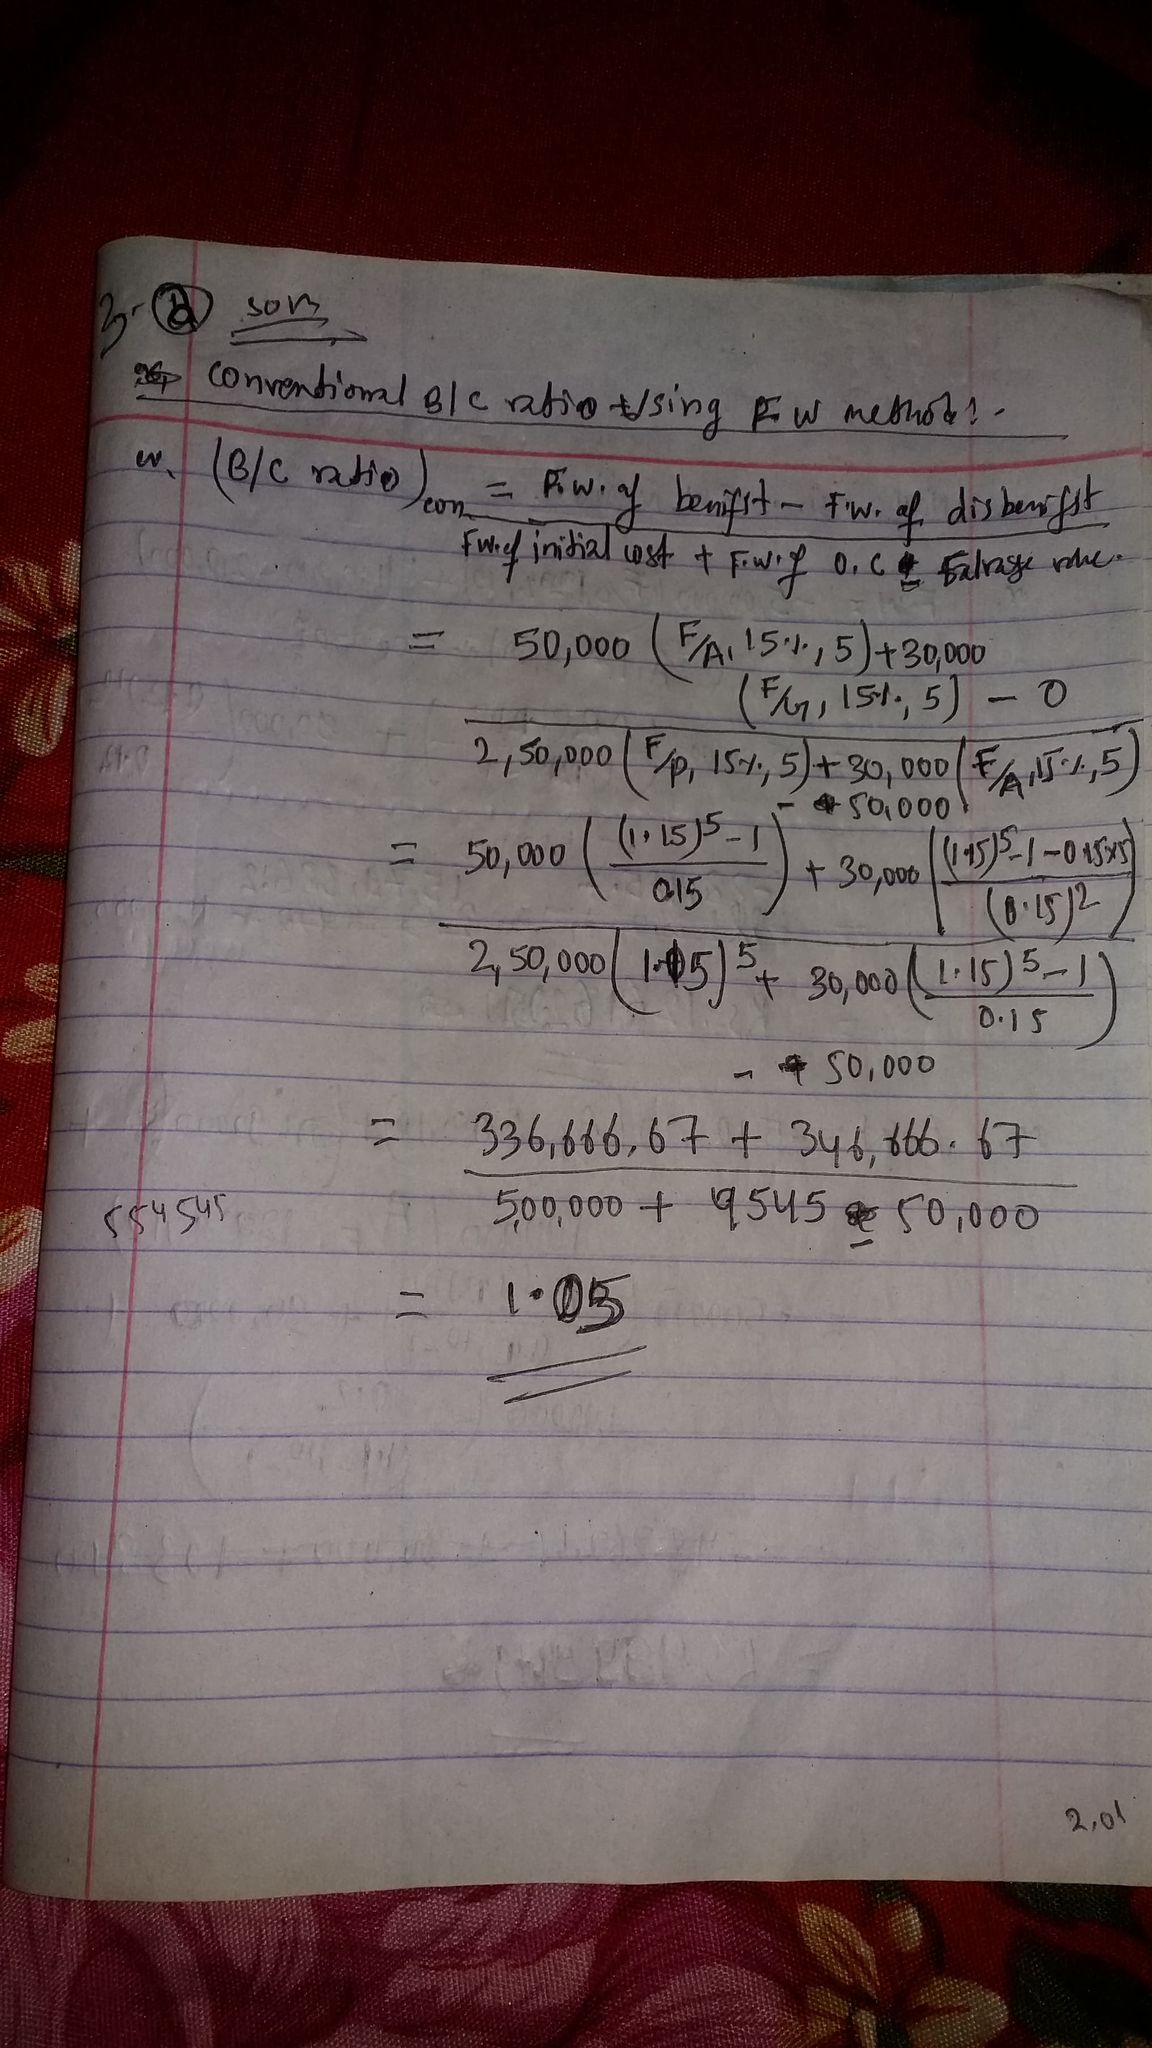 3. (b) soln
Conventional B/C ratio Using F.W method:-
(B/C ratio)con = F.W. of benifit - F.W. of disbenifit
F.W. of initial cost + F.W. of O.C - Salvage value.
= 50,000 (F/A, 15%, 5) + 30,000
(F/G, 15%, 5) - 0
2,50,000 (F/P, 15%, 5) + 30,000 (F/A, 15%, 5)
- 50,000
= 50,000 ((1.15)^5 - 1 / 0.15) + 30,000 ((1.15)^5 - 1 - 0.15x5 / (0.15)^2)
2,50,000 (1.15)^5 + 30,000 ((1.15)^5 - 1 / 0.15)
- 50,000
= 336,666.67 + 346,666.67
5,00,000 + 9545 - 50,000
554545
= 1.05
2,01